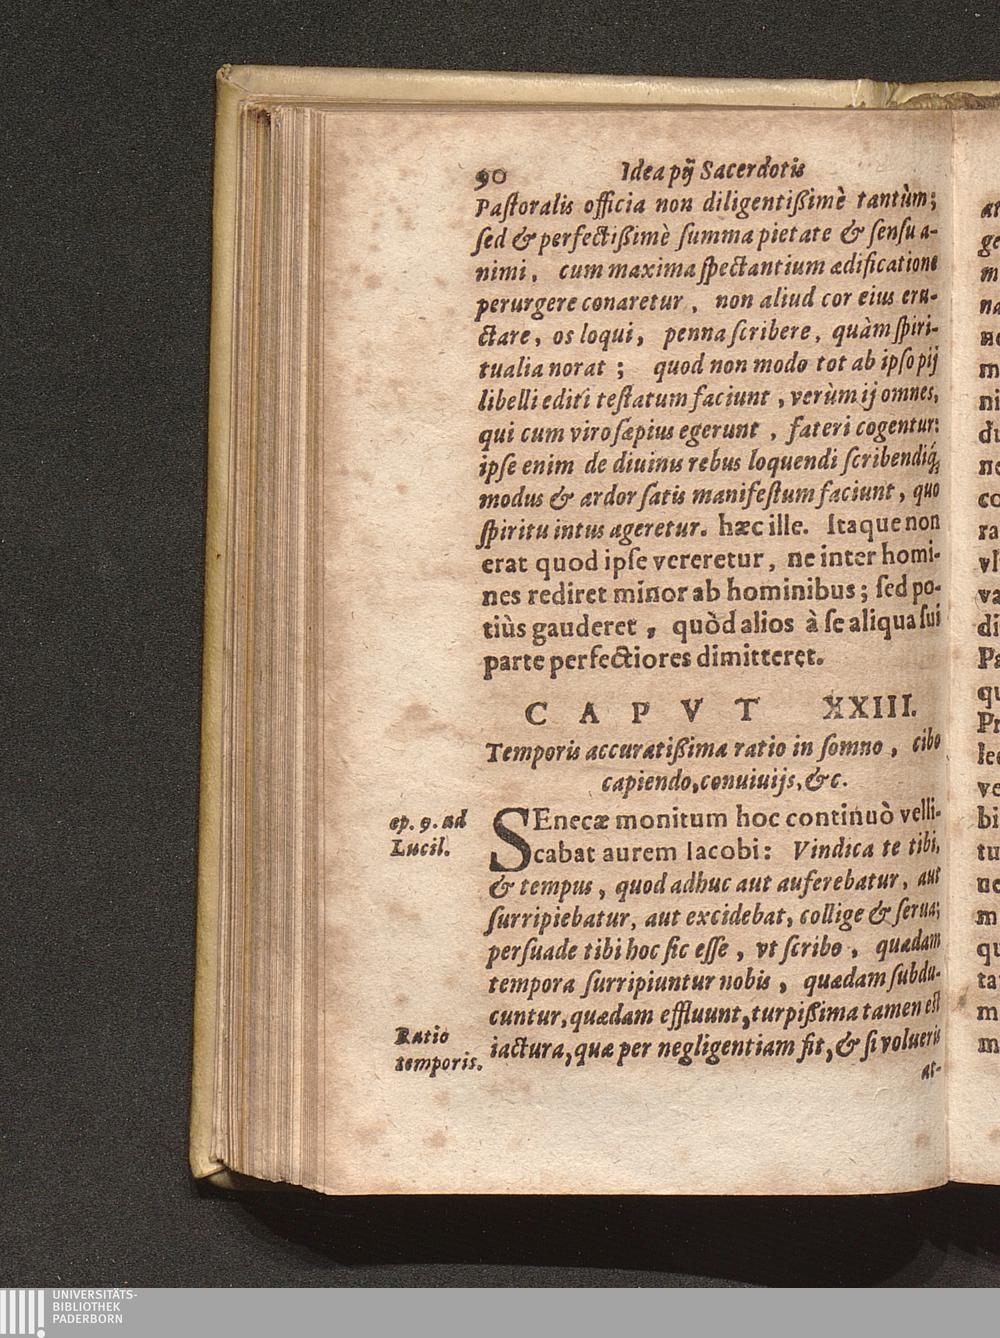 90 Idea pij Sacerdotis
Paſtoralis officia non diligentiſsimè tantùm;
ſed & perfectiſsimè ſumma pietate & ſenſu a-
nimi, cum maxima ſpectantium ædificatione
perurgere conaretur, non aliud cor eius eru-
ctare, os loqui, penna ſcribere, quàm ſpiri-
tualia norat; quod non modo tot ab ipſo pij
libelli editi teſtatum faciunt, verùm ij omnes,
qui cum viro ſæpius egerunt, fateri cogentur:
ipſe enim de diuinis rebus loquendi ſcribendiq́;
modus & ardor ſatis manifeſtum faciunt, quo
ſpiritu intus ageretur. hæc ille. Itaque non
erat quod ipſe vereretur, ne inter homi-
nes rediret minor ab hominibus; ſed po-
tiùs gauderet, quòd alios à ſe aliqua ſui
parte perfectiores dimitteret.
CAPVT XXIII.
Temporis accuratiſsima ratio in ſomno, cibo
capiendo, conuiuijs, &c.
ep. 9. ad
Lucil.
SEnecæ monitum hoc continuò velli-
cabat aurem Iacobi: Vindica te tibi,
& tempus, quod adhuc aut auferebatur, aut
ſurripiebatur, aut excidebat, collige & ſerua;
perſuade tibi hoc ſic eſſe, vt ſcribo, quædam
tempora ſurripiuntur nobis, quædam ſubdu-
cuntur, quædam effluunt, turpiſsima tamen eſt
Ratio
temporis.
iactura, quæ per negligentiam fit, & ſi volueris
at-
UNIVERSITÄTS-
BIBLIOTHEK
PADERBORN